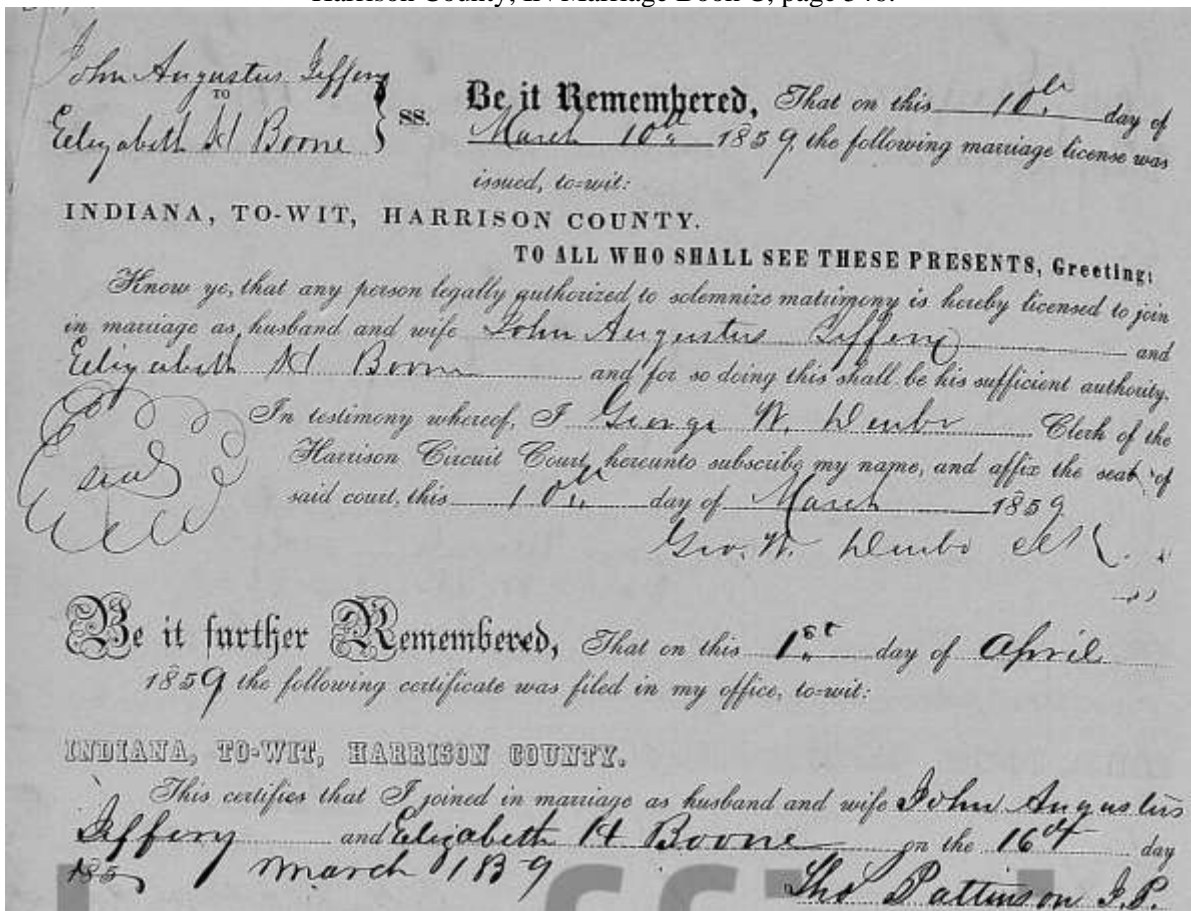 John Augustus Jeffery
TO
Elizabeth H Boone } SS.
Be it Remembered, That on this 10th day of
March 10th 1859, the following marriage license was
issued, to-wit:
INDIANA, TO-WIT, HARRISON COUNTY.
TO ALL WHO SHALL SEE THESE PRESENTS, Greeting:
Know ye, that any person legally authorized to solemnize matrimony is hereby licensed to join
in marriage as husband and wife John Augustus Jeffery and
Elizabeth H Boone and for so doing this shall be his sufficient authority.
In testimony whereof, I George W. Denbo Clerk of the
Seal
Harrison Circuit Court, hereunto subscribe my name, and affix the seal of
said court, this 10th day of March 1859
Geo. W. Denbo Clk.
Be it further Remembered, That on this 1st day of April
1859 the following certificate was filed in my office, to-wit:
INDIANA, TO-WIT, HARRISON COUNTY.
This certifies that I joined in marriage as husband and wife John Augustus
Jeffery and Elizabeth H Boone on the 16th day
185 march 1859
Tho Pattinson J.P.